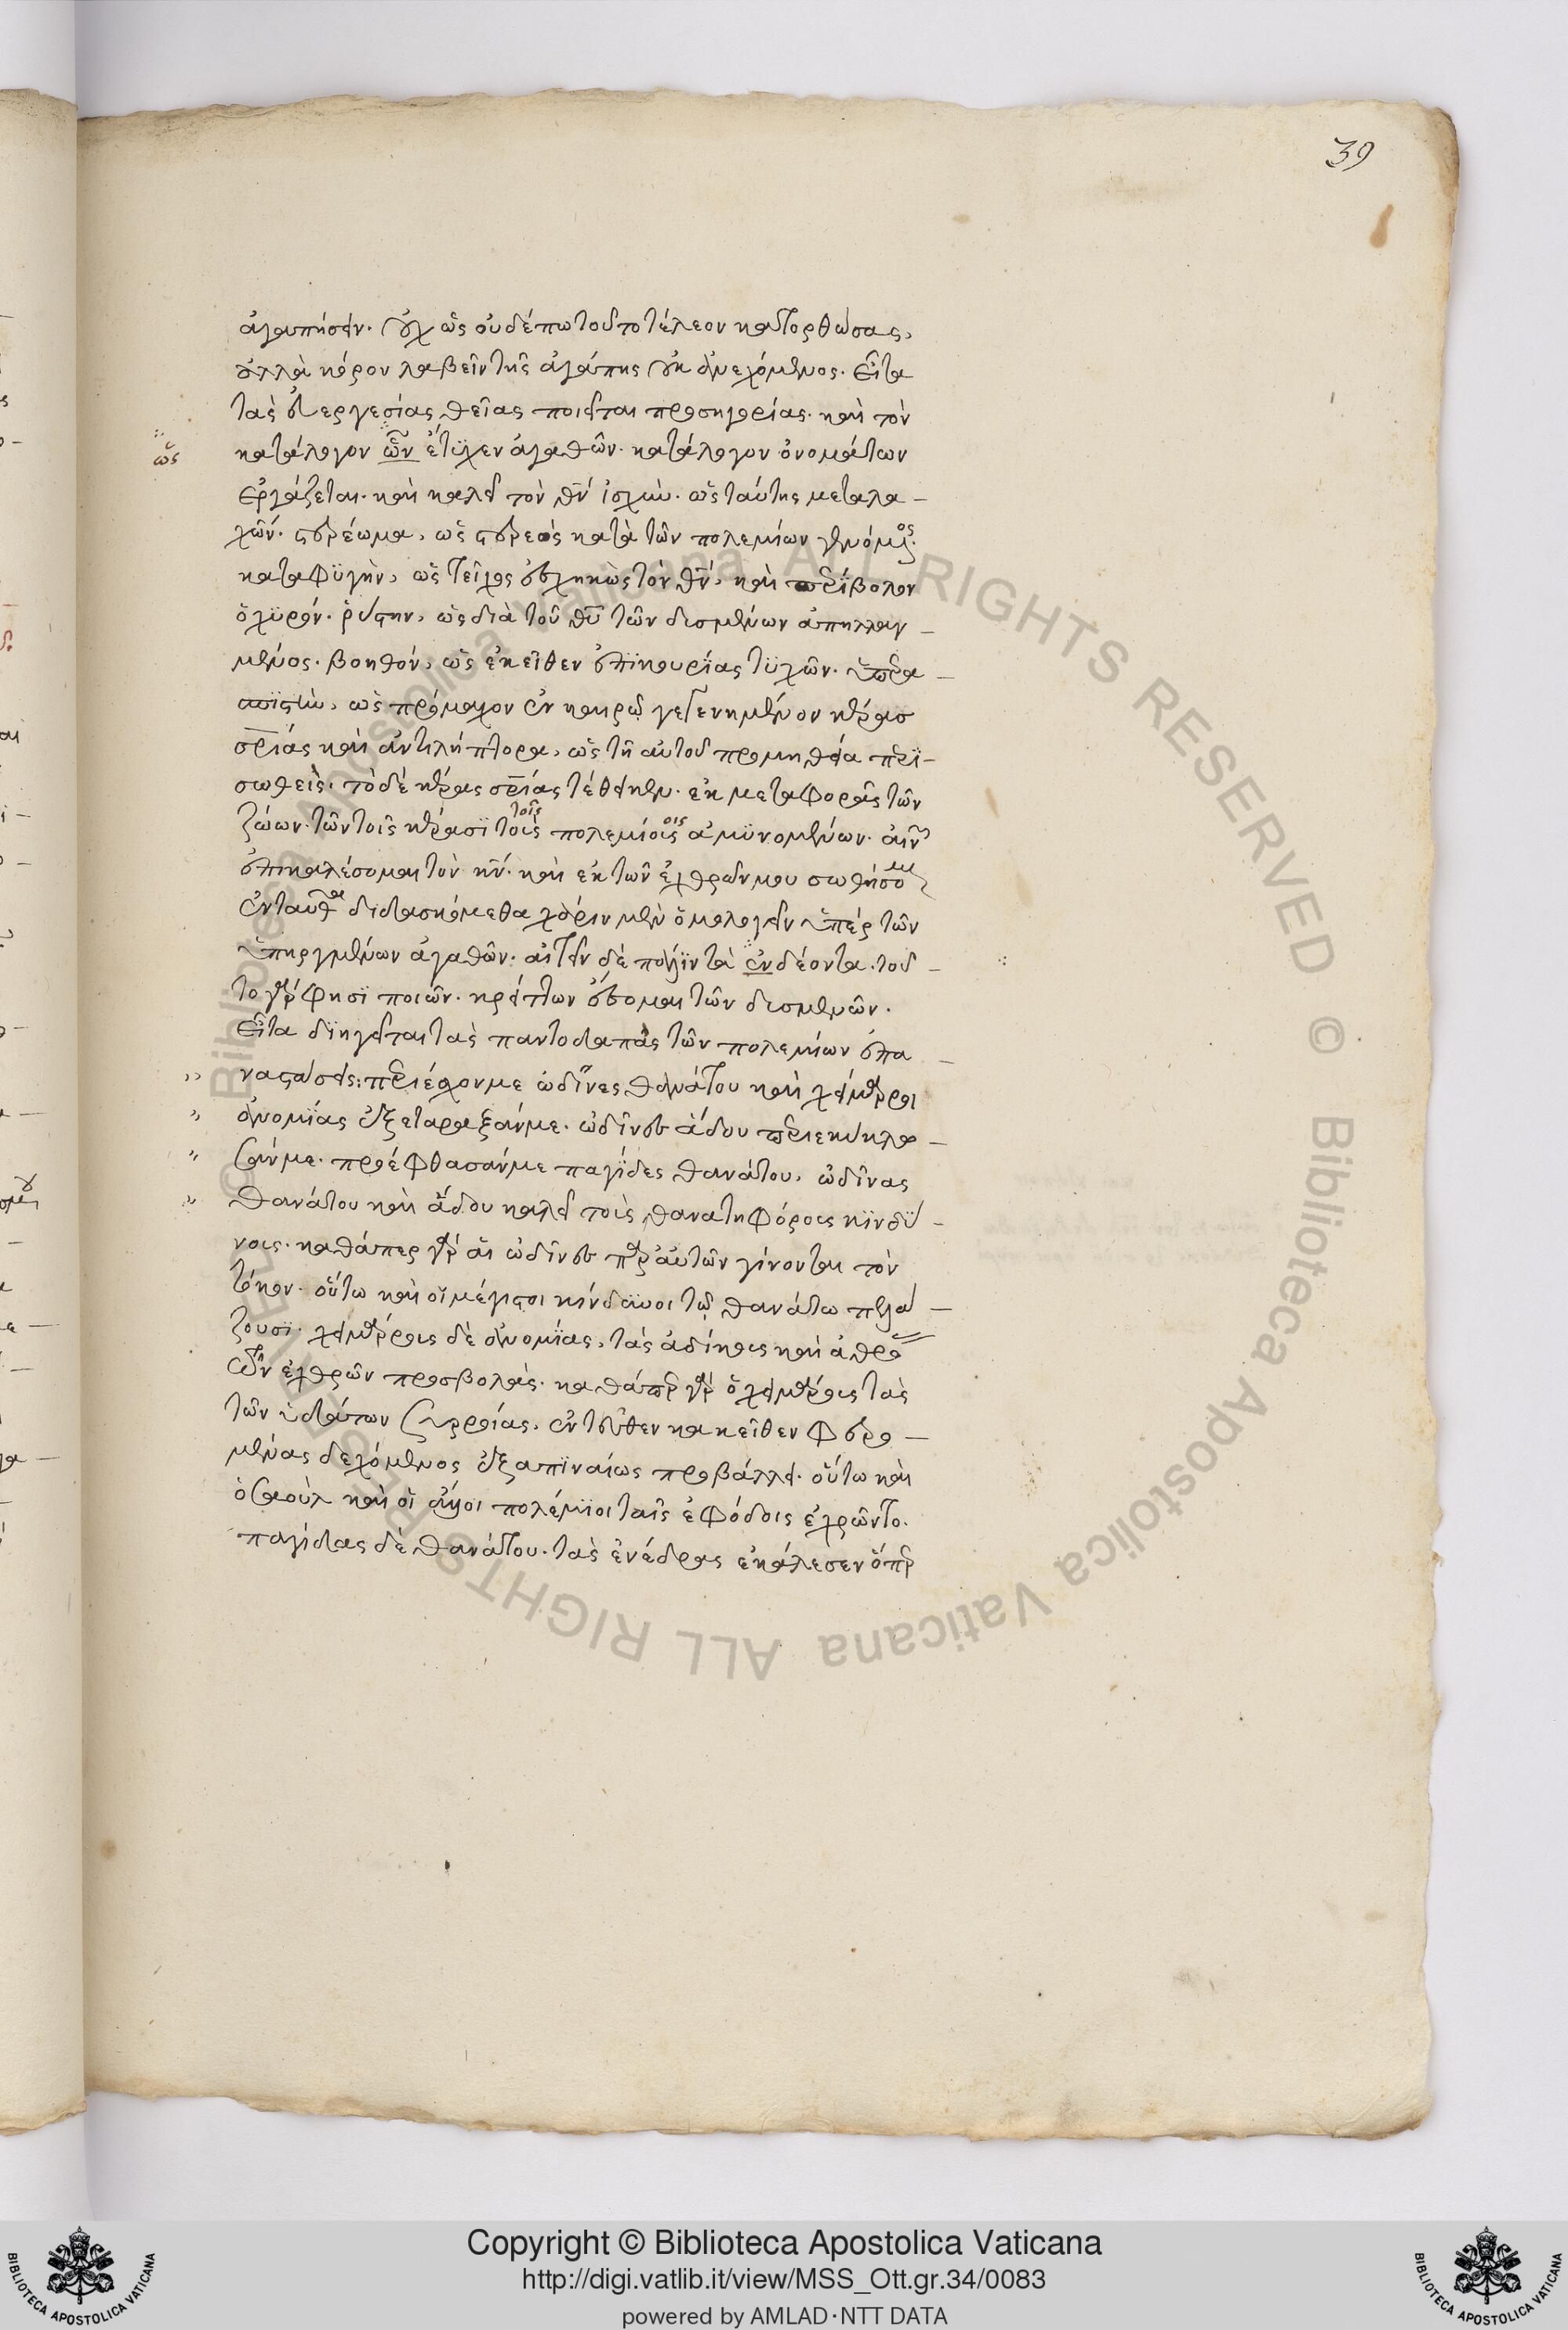 39
ἀγαπήσειν. οὐχ ὡς οὐδέπω τοῦτο τέλεον κατορθώσας,
ἀλλὰ κόρον λαβεῖν τῆς ἀγάπης οὐκ ἀνεχόμενος. εἶτα
τὰς εὐεργεσίας θείας ποιεῖται προσηγορίας. καὶ τὸν
κατάλογον ὧν ἔτυχεν ἀγαθῶν. κατάλογον ὀνομάτων
ὡς
ἐργάζεται. καὶ καλεῖ τὸν θν ἰσχὺν. ὡς ταύτης μεταλα-
χών. στερέωμα, ὡς στερεὸς κατὰ τῶν πολεμίων γενόμενος.
καταφυγὴν, ὡς τεῖχος εὐτυχηκὼς τὸν θν, καὶ περίβολον
ὀχυρόν. ῥύστην, ὡς διὰ τοῦ θυ τῶν δυσμενῶν ἀπηλλαγ-
μένος. βοηθόν, ὡς ἐκεῖθεν ἐπικουρίας τυχῶν. ὑπερα-
σπιστὴν, ὡς πρόμαχον ἐν καιρῷ γεγενημένον κέρας
σριάς καὶ ἀντιλήπτορα, ὡς τῇ αὐτοῦ προμηθείᾳ περι-
σωθείς. τὸ δὲ κέρας σριας τέθεικεν. ἐκ μεταφορᾶς τῶν
ζώων. τῶν τοῖς κέρασι τοῖς πολεμίοις ἀμυνομένων. αἰνῶν
ἐπικαλέσομαι τὸν κν. καὶ ἐκ τῶν ἐχθρῶν μου σωθήσομαι
ἐνταῦθα διδασκόμεθα χάριν μὲν ὁμολογεῖν ὑπὲρ τῶν
ὑπηργμένων ἀγαθῶν. αἰτεῖν δὲ πάλιν τὰ ἐνδέοντα. τοῦ-
το γάρ φησι ποιῶν. κρείττων ἔσομαι τῶν δυσμενῶν.
εἶτα διηγεῖται τὰς παντοδαπὰς τῶν πολεμίων ἐπα-
ναστάσεις: περιέσχον με ὠδῖνες θανάτου καὶ χείμαρροι
ἀνομίας ἐξετάραξάν με. ὠδῖνες ἅδου περιεκύκλω-
σάν με. προέφθασάν με παγίδες θανάτου, ὠδῖνας
θανάτου καὶ ἅδου καλεῖ τοὺς θανατηφόρους κινδύ-
νους. καθάπερ γὰρ αἱ ὠδῖνες παρ' αὐτῶν γίνονται τὸν
τόκον. οὕτω καὶ οἱ μέγιστοι κίνδυνοι τῷ θανάτῳ πελά-
ζουσι. χειμάρρους δὲ ἀνομίας, τὰς ἀδίκους καὶ ἀθρό
τῶν ἐχθρῶν προσβολάς. καθάπερ γὰρ ὁ χειμάρρους τὰς
τῶν ὑδάτων συρροίας, ἐντεῦθεν κακεῖθεν φερο-
μένας δεχόμενος ἐξαπιναίως προβάλλει. οὕτω καὶ
ὁ σαοὺλ καὶ οἱ ἄλλοι πολέμιοι ταῖς ἐφόδοις ἐχρῶντο.
παγίδας δὲ θανάτου. τὰς ἐνέδρας ἐκάλεσεν ὅπερ
Copyright © Biblioteca Apostolica Vaticana
http://digi.vatlib.it/view/MSS_Ott.gr.34/0083
powered by AMLAD·NTT DATA
BIBLIOTECA APOSTOLICA VATICANA
BIBLIOTECA APOSTOLICA VATICANA
© Biblioteca Apostolica Vaticana ALL RIGHTS RESERVED
© Biblioteca Apostolica Vaticana ALL RIGHTS RESERVED